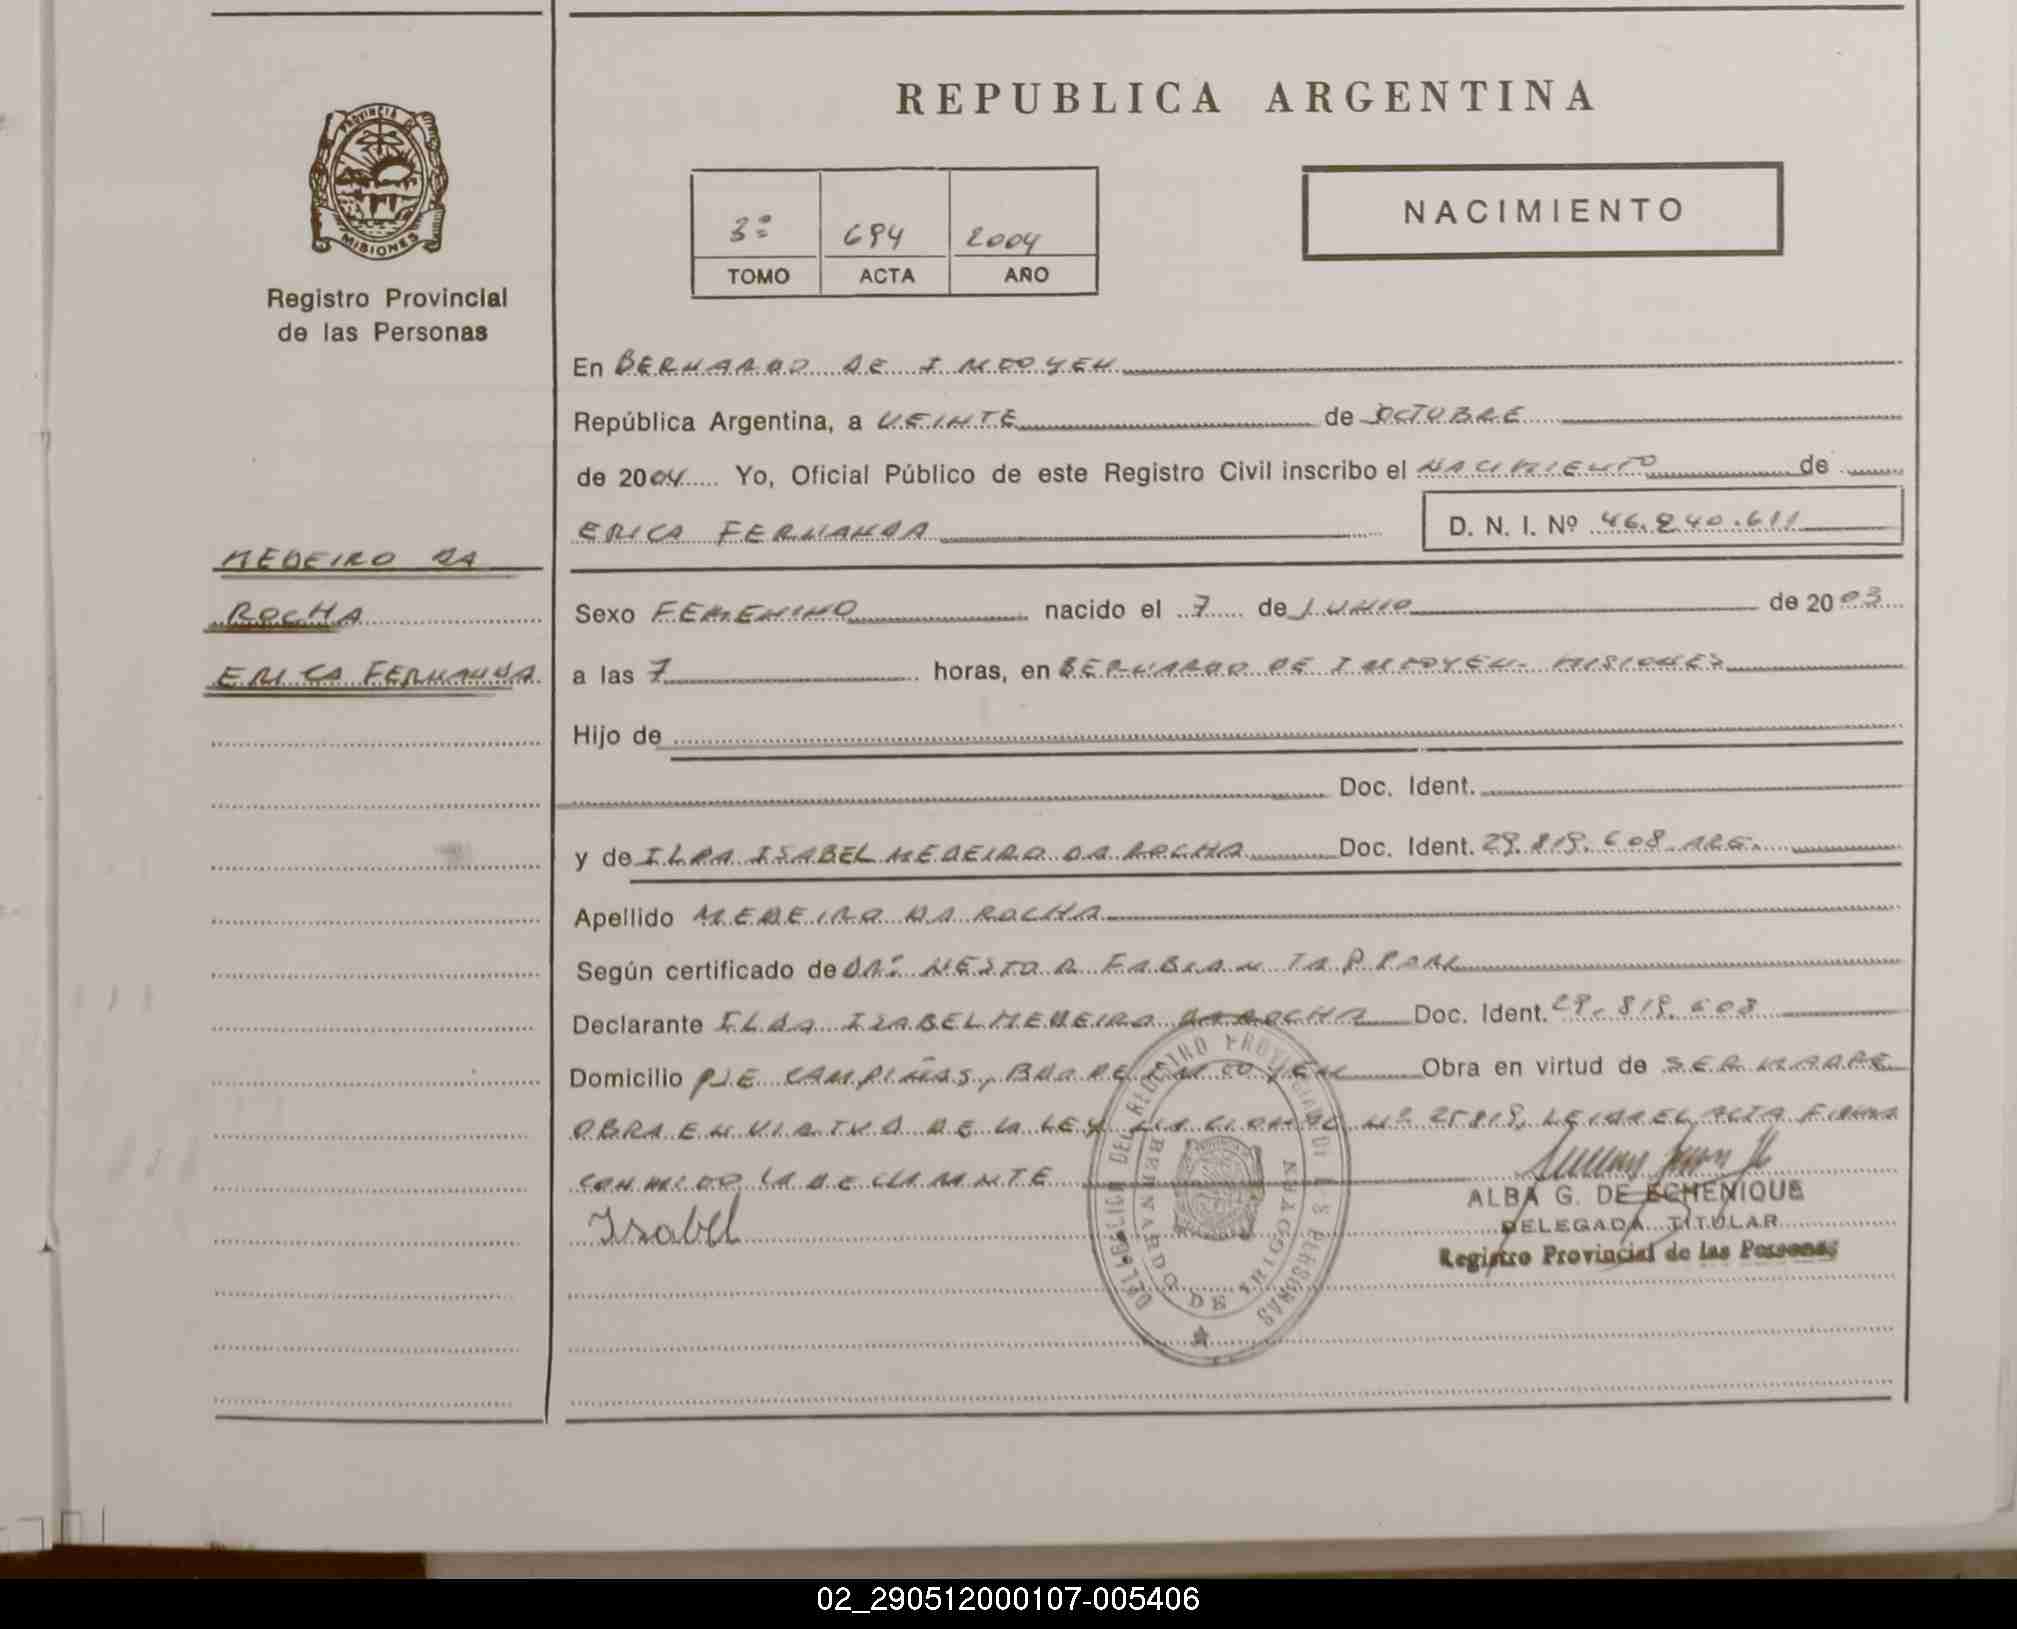 REPUBLICA ARGENTINA
PROVINCIA DE
MISIONES
Registro Provincial
de las Personas
3º 694 2004
TOMO ACTA AÑO
NACIMIENTO
En BERNARDO DE IRIGOYEN
República Argentina, a VEINTE de OCTUBRE
de 2004 Yo, Oficial Público de este Registro Civil inscribo el NACIMIENTO de
ERICA FERNANDA D. N. I. Nº 46.240.611
MEDEIRO DA
ROCHA
ERICA FERNANDA
Sexo FEMENINO nacido el 7 de JUNIO de 2003
a las 7 horas, en BERNARDO DE IRIGOYEN - MISIONES
Hijo de
Doc. Ident.
y de ILDA ISABEL MEDEIRO DA ROCHA Doc. Ident. 29.819.608 ARG.
Apellido MEDEIRO DA ROCHA
Según certificado de DR. NESTOR FABIAN
Declarante ILDA ISABEL MEDEIRO DA ROCHA Doc. Ident. 29.819.608
Domicilio PJE CAMPIÑAS, BDO DE IRIGOYEN Obra en virtud de SER MADRE
OBRA EN VIRTUD DE LA LEY NACIONAL Nº 25819, LEIDA EL ACTA FIRMA
CONMIGO LA DECLARANTE
Isabel
DELEGACION DEL REGISTRO PROVINCIAL DE LAS PERSONAS
BERNARDO DE IRIGOYEN
ALBA G. DE ECHENIQUE
DELEGADA TITULAR
Registro Provincial de las Personas
02_290512000107-005406